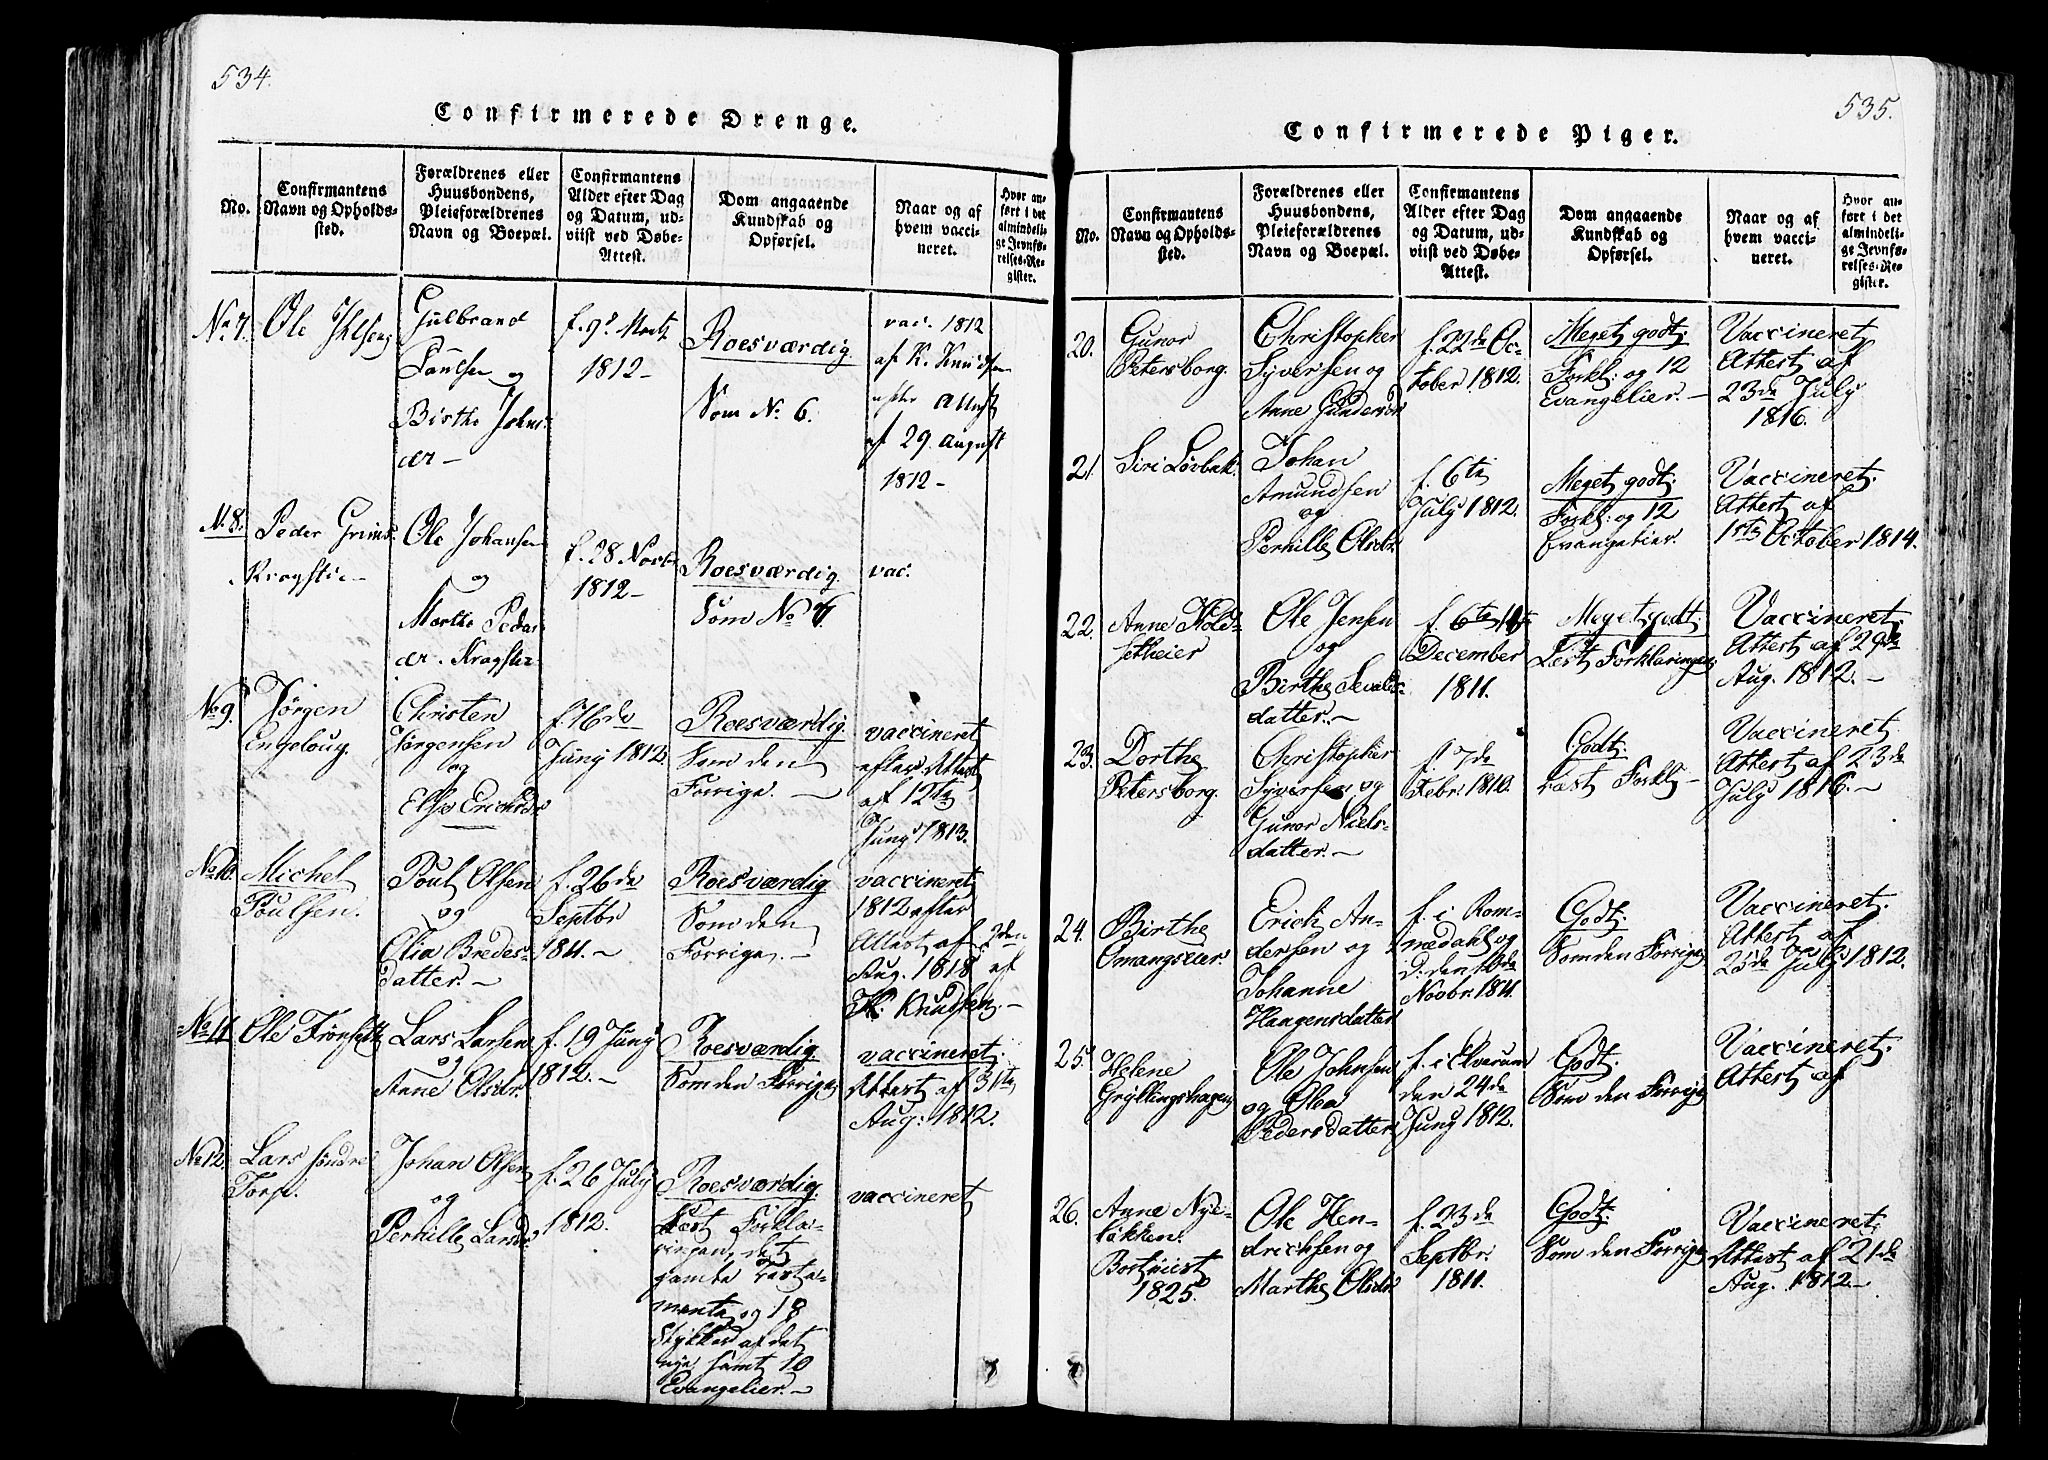 534.
Confirmerede Drenge.
No.
Confirmantens
Navn og Opholds-
sted.
Forældrenes eller
Huusbondens,
Pleieforældrenes
Navn og Boepæl.
Confirmantens
Alder efter Dag
og Datum, ud-
viist ved Døbe-
Attest.
Dom angaaende
Kundskab og
Opførsel.
Naar og af
hvem vacci-
neret.
Hvor an-
ført i det
almindeli-
ge Jevnfø-
relses-Re-
gister.
No 7.
Ole
Gulbrand
Paulsen og
Birthe Johns-
dr —
f. 9de Martz
1812 —
Roesværdig
Som No 6.
vac. 1812
af K. Knudsen
efter Attest
af 29. August
1812 —
No 8.
Peder Grims-
Kragstie —
Ole Johansen
og
Marthe Peders-
dr. Kragstie
f. 28
1812 —
Roesværdig
Som No
vac.
No 9.
Jörgen
Engeloug.
Christen
Jörgensen
og
Else Ericksdr.
f. 16de
Juny 1812.
Roesværdig.
Som den
Forrige. —
vaccineret
efter Attest
af 12te
Juny 1813.
No 10.
Michel
Poulsen.
Poul Olsen
og
Olia Bredes-
datter. —
f. 26de
Septbr
1811. —
Roesværdig
Som den
Forrige. —
vaccineret
1812 efter
Attest af 2den
Aug. 1818 af
K. Knudsen. —
No 11.
Ole Frönsett
Lars Larsen
og
Anne Olsdr.
f. 19 Juny
1812. —
Roesværdig
Som den Forrige
vaccineret.
Attest af 31te
Aug: 1812.
No 12.
Lars söndre
Torp.
Johan Olsen
og
Pernille Larsdr.
f. 26 July
1812.
Roesværdig.
Læst Forkla-
ringen, det
gamle Testa-
mente og 18
Stykker af det
nye samt 10
Evangelier. —
vaccineret
535.
Confirmerede Piger.
No.
Confirmantens
Navn og Opholds-
sted.
Forældrenes eller
Huusbondens,
Pleieforældrenes
Navn og Boepæl.
Confirmantens
Alder efter Dag
og Datum, ud-
viist ved Døbe-
Attest.
Dom angaaende
Kundskab og
Opførsel.
Naar og af
hvem vacci-
neret.
Hvor an-
ført i det
almindeli-
ge Jevnfø-
relses-Re-
gister.
20.
Gunor
Petersborg.
Christopher
Syversen og
Anne Gundersdr
f. 22de Oc-
tober 1812.
Meget godt:
Forkl: og 12
Evangelier. —
Vaccineret
Attest af
23de July
1816.
21.
Siri Lövbak.
Johan
Amundsen
og
Pernille Olsdr.
f. 6te
July 1812.
Meget godt:
Forkl: og 12
Evangelier.
Vaccineret.
Attest af
1ste October 1814.
22.
Anne Hold-
setheier
Ole Jensen
og
Birthe Sevalds-
datter. —
f. 6te
December
1811.
Meget godt:
Læst Forklaringen
Vaccineret.
Attest af 29de
Aug. 1812. —
23.
Dorthe
Petersborg.
Christopher
Syversen og
Gunor Niels-
datter. —
f. 7de
Febr: 1810.
Godt:
Læst Forkl: —
Vaccineret
Attest af 23de
July 1816. —
24.
Birthe
Omangseier.
Erick An-
dersen og
Johanne
Haagensdatter
f. i Rom-
medahl og
d: den 10de
Novbr. 1811.
Godt:
Som den Forrige
Vaccineret.
Attest af
25de July 1812.
25.
Helene
Gryllingshagen
Ole Johnsen
og Olea
Pedersdatter.
f. i Elverum
den 24de
Juny 1812.
Godt:
Som den Forrige
Vaccineret.
Attest af
26.
Anne Nye-
løkken.
Bortviist
1825.
Ole Hen-
dricksen og
Marthe Olsdr.
f. 23de
Septbr:
1811.
Godt:
Som den Forrige
Vaccineret.
Attest af 21de
Aug. 1812 —